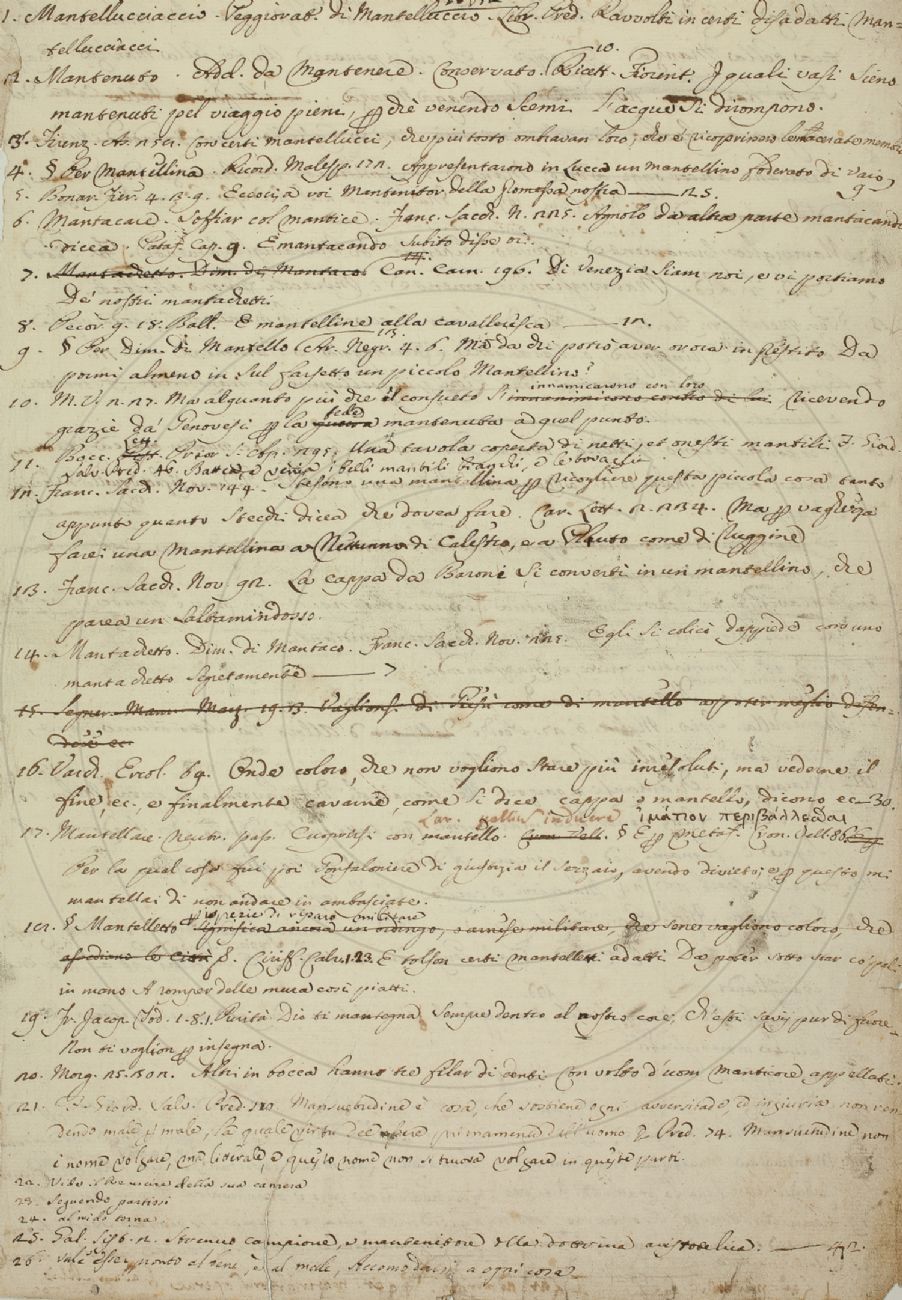 1. Mantellucciaccio. Peggiorat. di Mantelluccio. Libr. Pred. Ravvolti in certi disadatti Man=
tellucciacci.
2. Mantenuto. Add. da Mantenere. Conservato. Ricett. Fiorent. 10. I quali vasi sieno
mantenuti pel viaggio pieni, perchè venendo scemi l'acque si dirompono.
3. Con certi mantellucci, che più tosto ombravan loro, che
4. § Per Mantillina. Ricord. Malesp. 172. Appresentarono in Lucca un mantellino foderato di vaio, 9
5. Bonar. Fier. 4. 2. 9. Eccoci a voi Mantenitor della promessa nostra —— 25.
6. Mantacare. Soffiar col mantice. Franc. Sacch. N. 225. Agnolo da altra parte mantacando
dicea. Pataf. Cap. 9. E mantacando subito disse oi.
7. Mantachetto. Dim. di Mantaco. 14. Can. Carn. 196. Di Venezia siam noi, e vi portiamo
De' nostri mantachetti.
8. Pecor. g. 18. Ball. E mantelline alla cavalleresca —— 12.
9. § Per Dim. di Mantello 13. Ar. Negr. 4. 6. Ma da chi potrò aver ora in prestito Da
pormi almeno in sul farsetto un piccolo Mantellino?
10. M. V. 2. 27. Ma alquanto più che il consueto s'innamicarono con loro ricevendo
grazie da' Genovesi per la fede mantenuta a quel punto.
11. Bocc. Lett. Prior. S. Ap. 295. Una tavola coperta di netti, et onesti mantili. F. Giord.
Salv. Pred. 46. i belli mantili bianchi, e le tovaglie.
12. Franc. Sacch. Nov. 144. Stesono una mantellina per ricogliere questa piccola cosa tanto
appunto quanto Stecchi dicea che dovea fare. Car. Lett. 2. 234. Ma per vaghezza
farei una Mantellina a Nettunno di Celestro, e a Pluto come di Ruggine
13. Franc. Sacch. Nov. 92. La cappa da Barone si convertì in un mantellino, che
parea un saltamindosso.
14. Mantachetto. Dim. di Mantaco. Franc. Sacch. Nov. Egli si colicò dappiede con uno
mantachetto segretamente —— 7
15. Segner. Mann. Marz. 19. 3. di Gesù come di mantello a poter meglio difen=
dersi ec.
16. Varch. Ercol. 64. Onde coloro, che non vogliono stare più irresoluti, ma vederne il
fine, ec. e finalmente cavarne, come si dice, cappa o mantello, dicono ec. 30.
Lat. pallium induere ἱμάτιον περιβάλλεσθαι
17. Mantellare. Neutr. pass. Cuoprirsi con mantello. § E per metaf. Cron. Vell. 86.
Per la qual cosa fui poi Gonfaloniere di giustizia il sezzaio, avendo divieto; e per questo mi
mantellai di non andare in ambasciate.
18. § Mantelletto per spezie di riparo militare significa ancora un ordingo, o arnese militare, che sene vagliono coloro, che
assediano le Città §. Ciriff. Calv. 1. 23. E tolson certi mantelletti adatti Da poter sotto star co' pali
in mano A romper delle mura così piatti.
19. Fr. Jacop. Tod. 1. 8. 1. Purità Dio ti mantegna Sempre dentro al nostro core, Ch'essi savj pur di fuore
Non ti voglion per insegna.
20. Morg. 25. 302. Altri in bocca hanno tre filar di denti Con volto d'uom manticore appellati.
21. F. Giord. Salv. Pred. Mansuetudine è cosa, che sostiene ogni avversitade, ed ingiuria non ren
dendo male per male, la quale virtù dee avere primamente dell'uomo. E Pred. 74. Mansuetudine non
è nome volgare, ma liberale, e questo nome non si truova volgare in queste parti.
22. della sua camera
23. Seguendo partissi
24. al nido torna
25. Gal. Sist. 2. Strenuo campione, e mantenitore della dottrina aristotelica. —— 42.
26. pronto al bene, e al male, Accomodarsi a ogni cosa